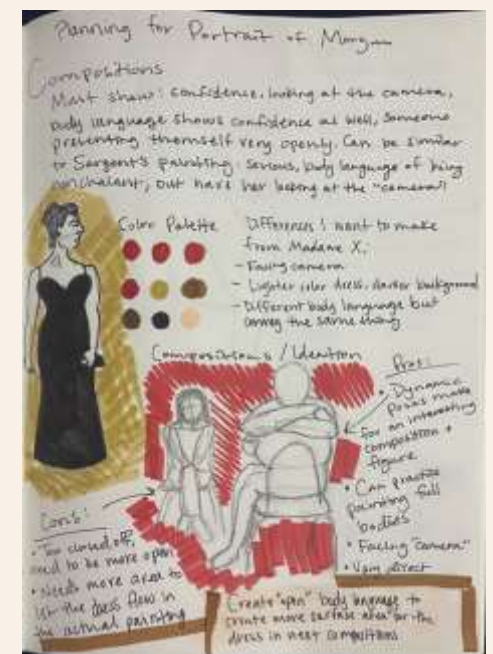 Planning for Portrait of
Compositions
Must show: confidence, looking at the camera,
body language shows confidence as well, someone
presenting themself very openly. Can be similar
to Sargent's painting: serious, body language of being
nonchalant, but have her looking at the "camera"
Color Palette
Differences I want to make
from Madame X:
- Facing camera
- Lighter color dress, darker background
- Different body language but
convey the same thing
Compositions / Ideation
Pros:
• Dynamic
poses make
for an interesting
composition +
figure
• Can practice
painting full
bodies
• Facing "camera"
• Very direct
Cons:
• Too closed off,
need to be more open
• Needs more area to
let the dress flow in
the actual painting
Create "open" body language to
create more surface area for the
dress in next compositions